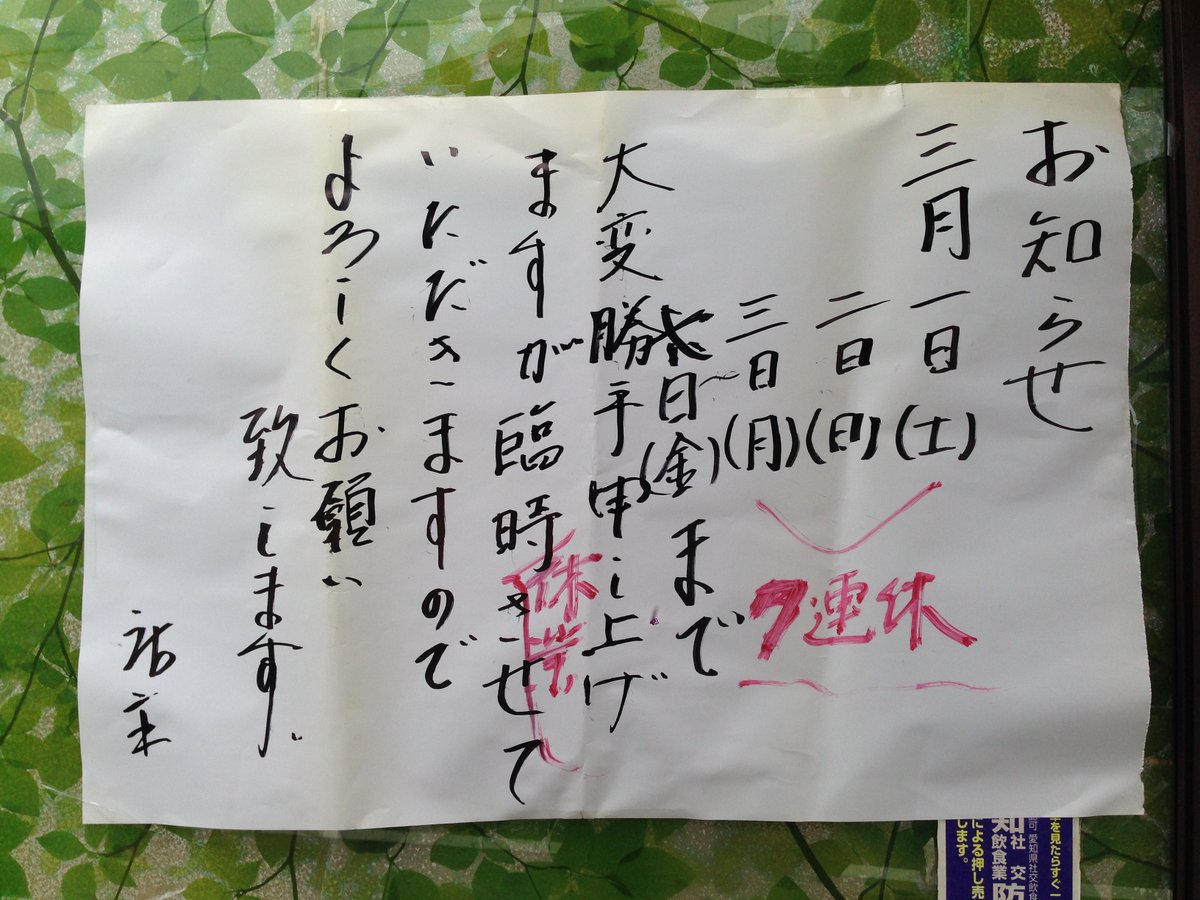 お知らせ
三月一日(土)
二日(日)
三日(月)
〜七日(金)まで
7連休
大変勝手申し上げ
ますが臨時させて
休業
いただきますので
よろしくお願い
致します。
を見たらすぐ一
可 愛知県社交飲食
社交
飲食業防
による押し売
します。